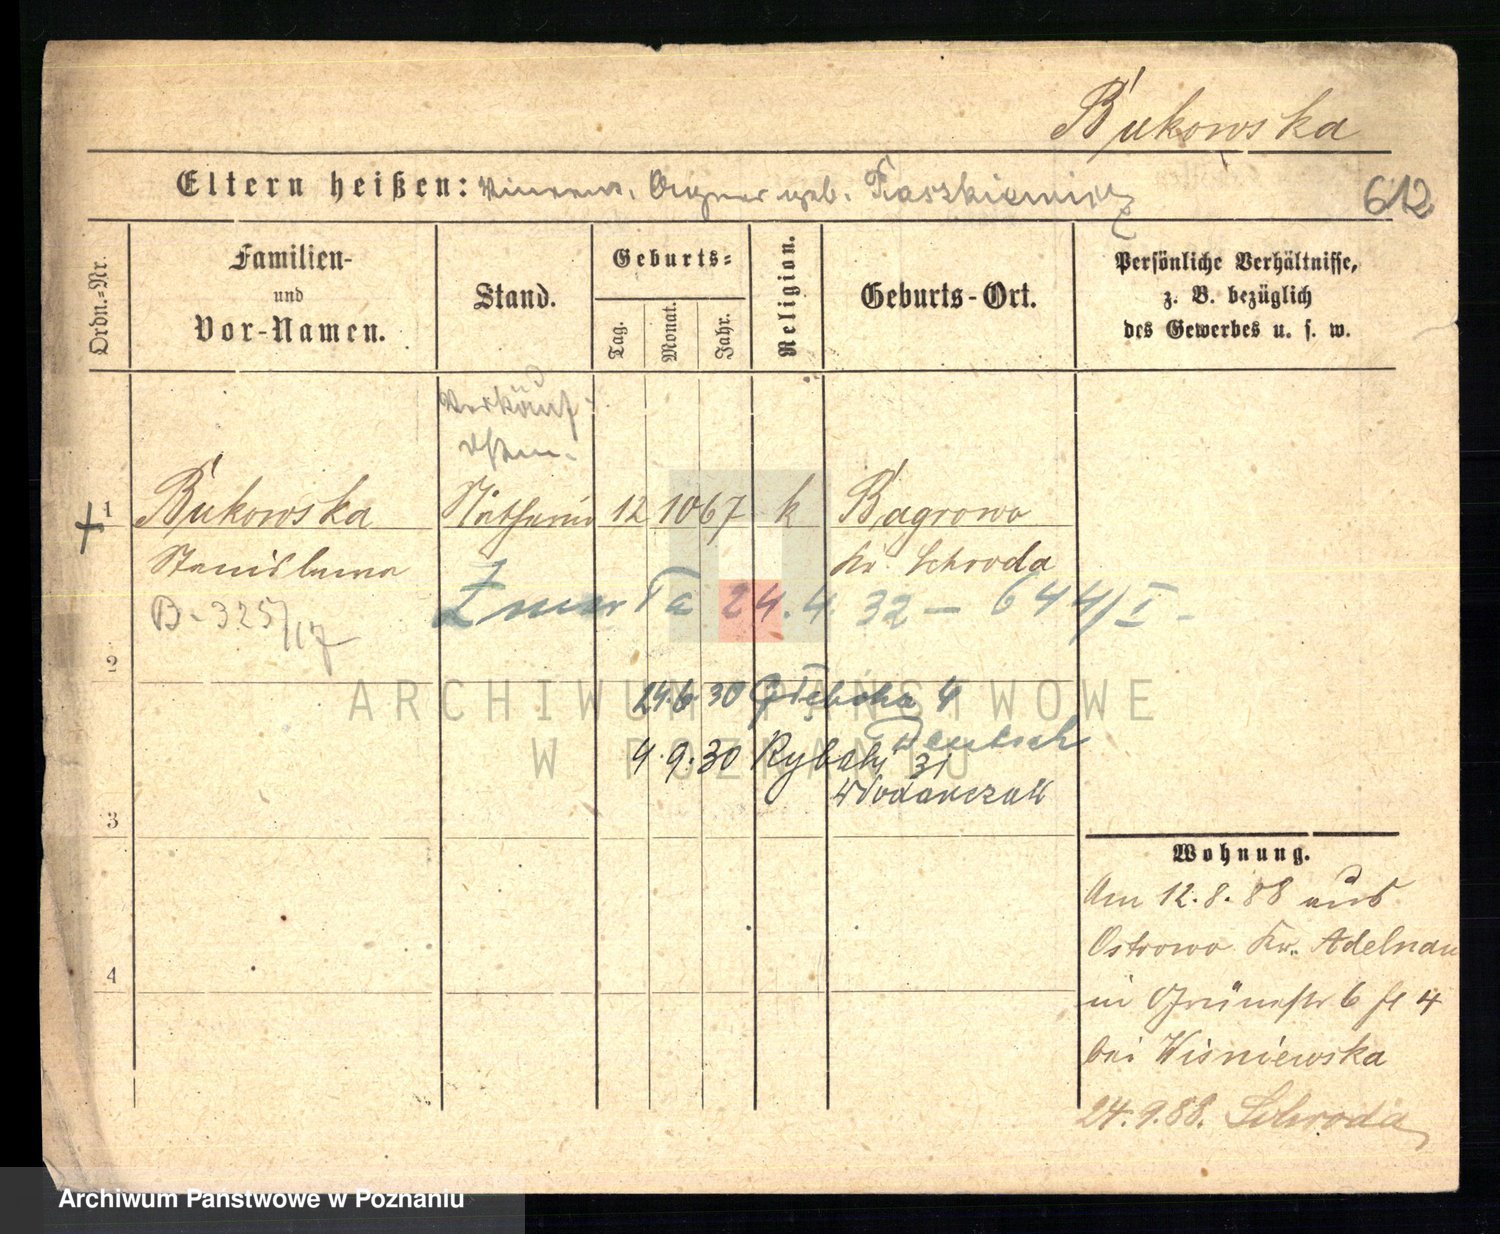 Bukowska
Eltern heißen: Vincent. Agnes geb. Raszkiewicz
612
Ordn.-Nr.
Familien-
und
Vor-Namen.
Stand.
Geburts-
Tag.
Monat.
Jahr.
Religion.
Geburts-Ort.
Persönliche Verhältnisse,
z. B. bezüglich
des Gewerbes u. s. w.
Verkäuf-
1
Bukowska
12 10 67 k Bagrowo
Stanislawa
Kr. Schroda
Zmarła 24.4 32 - 644/I -
B-325/17
2
24.6 30 Głęboka 4
Deutsch
4.9.30 Rybaki 31
Włodarczak
3
Wohnung.
Am 12.8.88 aus
Ostrowo Kr. Adelnau
in Grünestr 6 H 4
bei Wisniewska
24.9.88. Schroda
4
ARCHIWUM PAŃSTWOWE
W POZNANIU
Archiwum Państwowe w Poznaniu